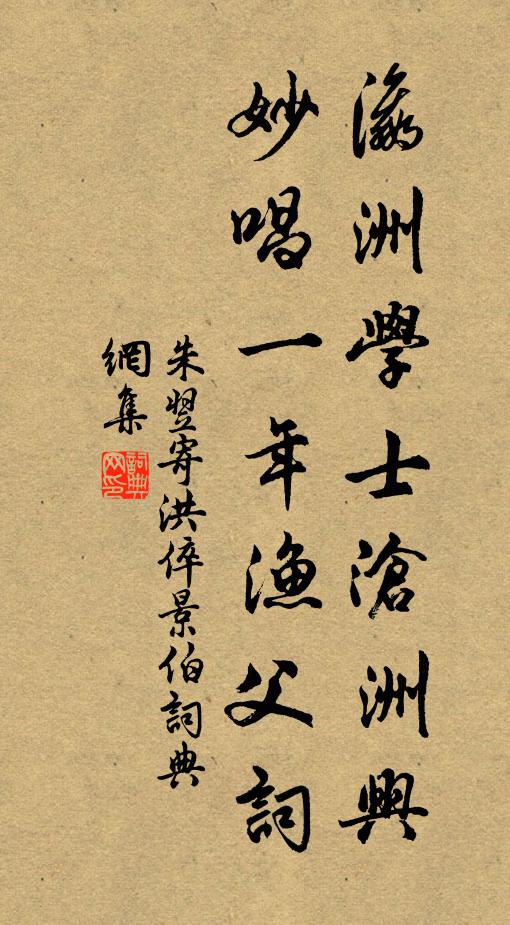 瀛洲學士滄洲興
妙唱一年漁父詞
朱翌寄洪倅景伯詞典
網集
詞典網印